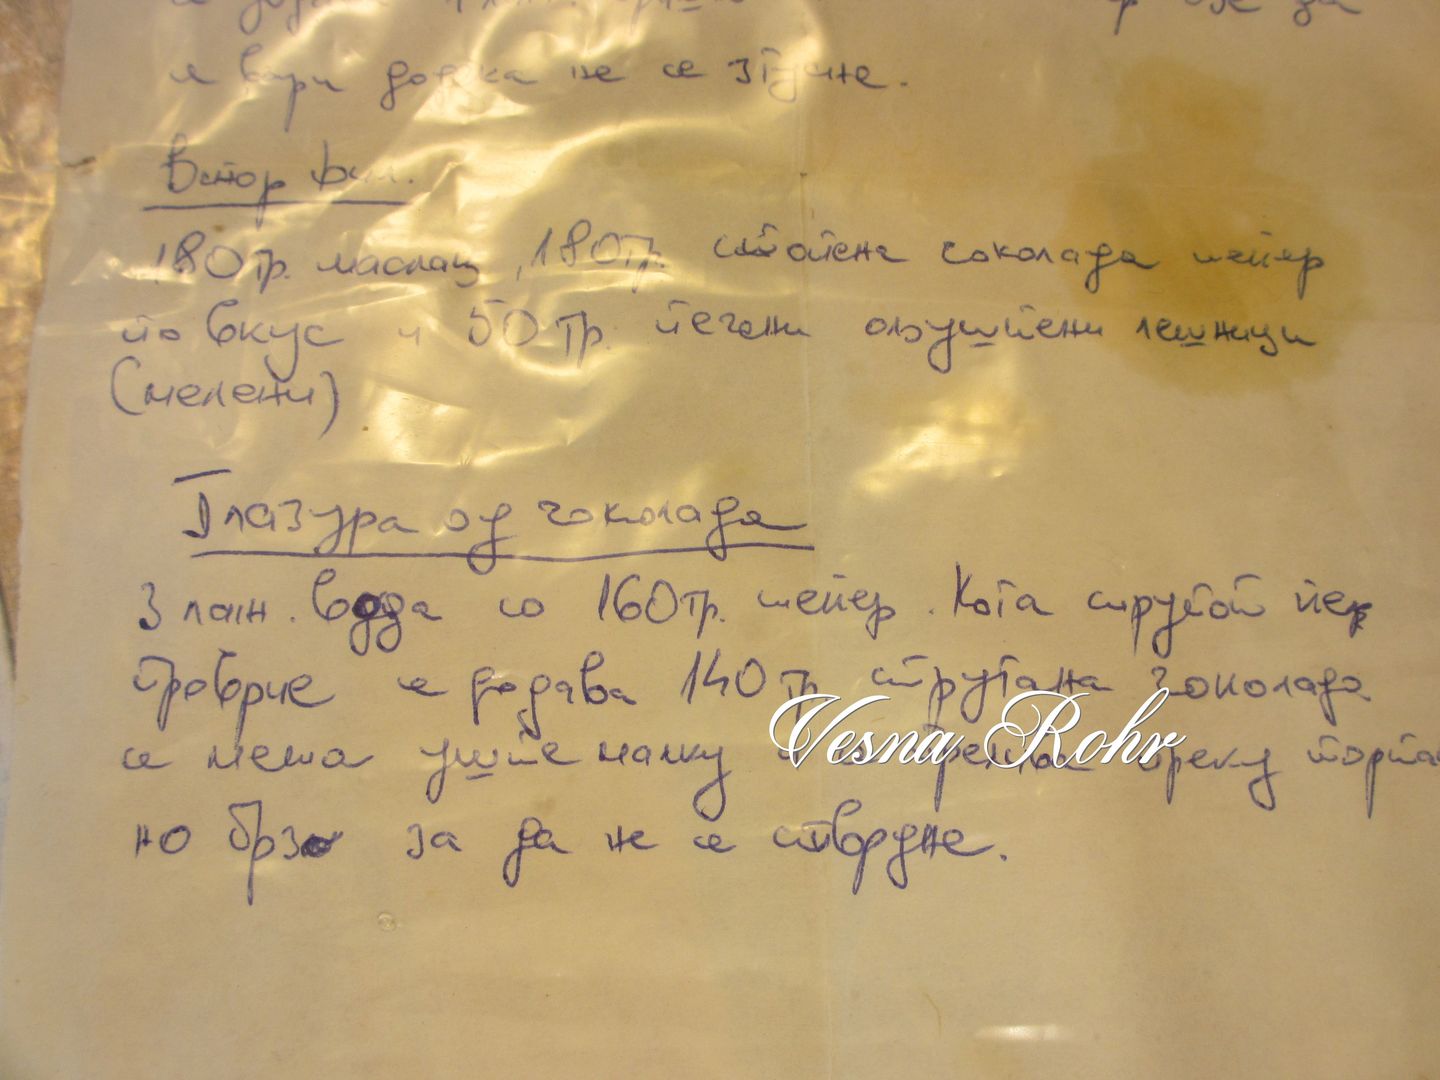 се вари додека не се згусне.
Втор фил.
180 гр. маслац, 180 гр. стопена чоколада шеќер
по вкус и 50 гр. печени олуштени лешници
(мелени)
Глазура од чоколада
3 лаж. вода со 160 гр. шеќер. Кога сирупот ќе
проврие се додава 140 гр стругана чоколада
се меша уште малку и се преку торта
но брзо за да не се стврдне.
Vesna Rohr